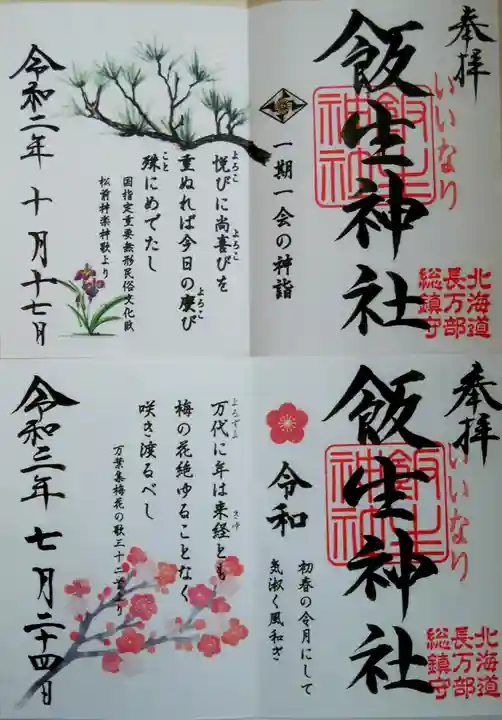 奉拝
いいなり
飯生神社
飯生神社
北海道
長万部
総鎮守
一期一会の神詣
悦びに尚喜びを
よろこ
よろこ
重ぬれば今日の慶び
よろこ
殊にめでたし
こと
国指定重要無形民俗文化財
松前神楽神歌より
令和二年十月十七日
奉拝
いいなり
飯生神社
飯生神社
北海道
長万部
総鎮守
令和
初春の令月にして
気淑く風和ぎ
万代に年は来経とも
よろずよ
きゆ
梅の花絶ゆることなく
咲き渡るべし
万葉集梅花の歌三十二首より
令和二年七月二十四日